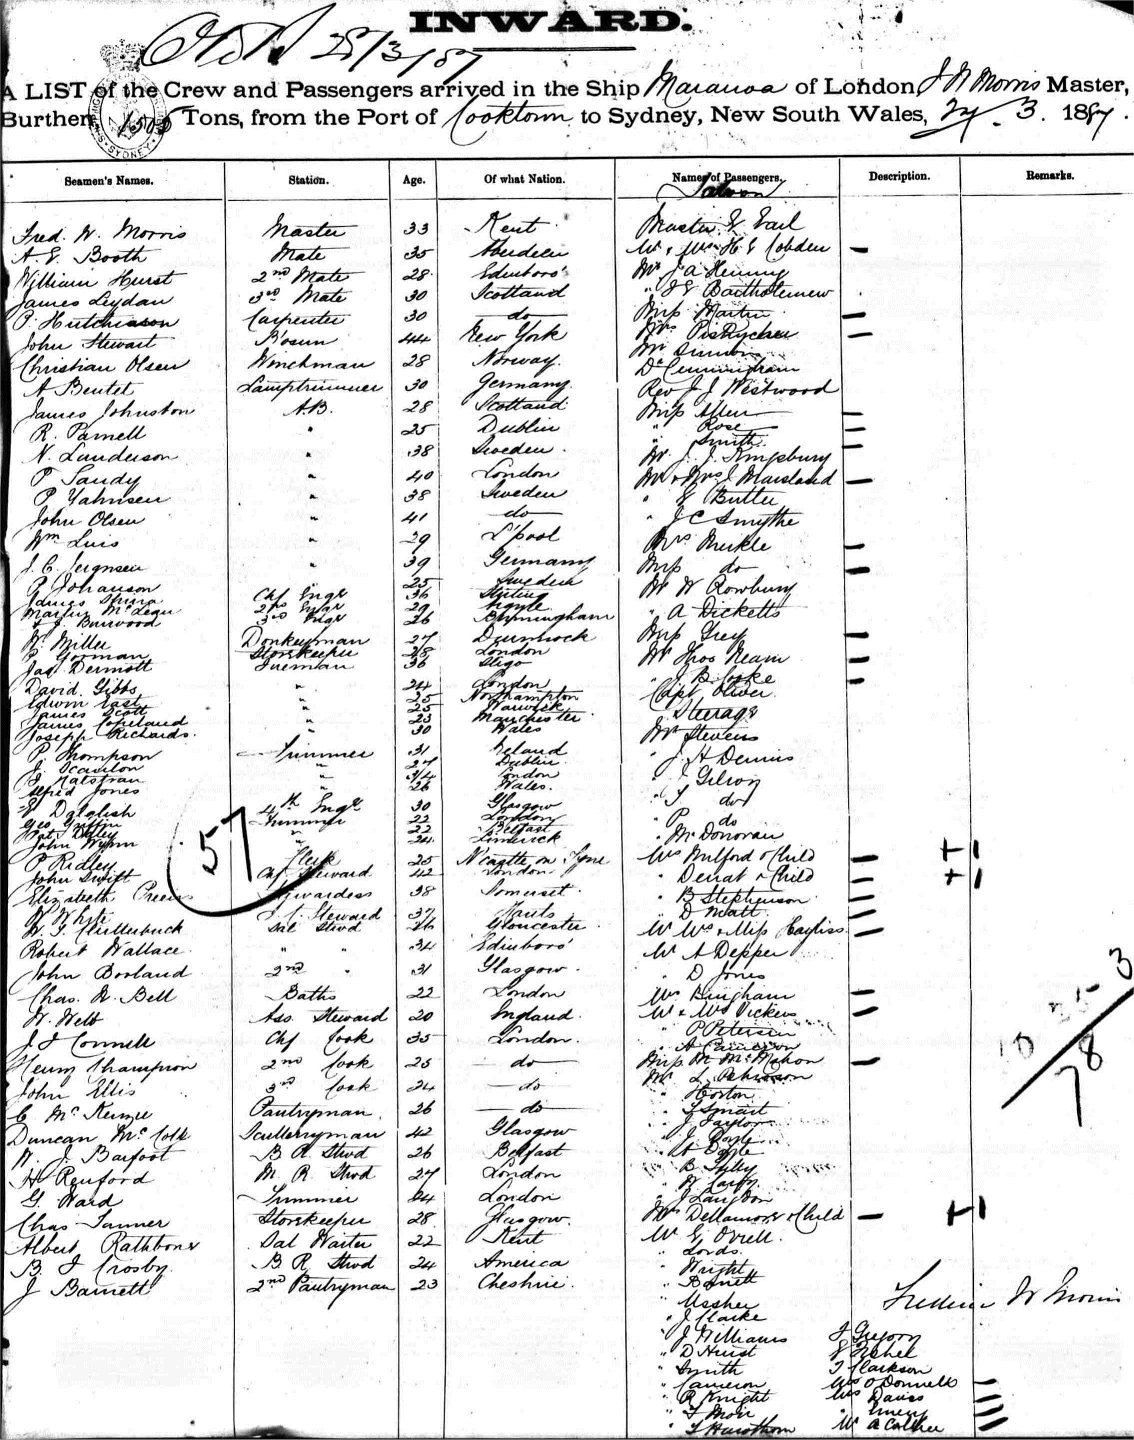 INWARD.
28/3/87
A LIST of the Crew and Passengers arrived in the Ship Maranoa of London J W Morris Master,
Burthen 1505 Tons, from the Port of Cooktown to Sydney, New South Wales, 27. 3. 1887.
Seamen's Names. Station. Age. Of what Nation. Names of Passengers. Description. Remarks.
Saloon
Fred. W. Morris Master 33 Kent Master E Earl
A. E. Booth Mate 35 Aberdeen Mr & Mrs H E Cobden
William Hurst 2nd Mate 28 Edinboro' Mr J A Heming
James Leydan 3rd Mate 30 Scotland " J E Bartholemew
P. Hutchison Carpenter 30 do Miss Martin
John Stewart Bosun 44 New York Mrs
Christian Olsen Winchman 28 Norway. Mr
A Beutet Lamptrimmer 30 Germany Dr Cunningham
James Johnston A.B. 28 Scotland Rev J J Westwood
R. Parnell " 25 Dublin Miss Allen
N. Lunderson " 38 Sweden. " Rose
P Sandy " 40 London " Smith
P Yahnsen " 38 Sweden Mr J. J. Kingsbury
John Olsen " 41 do Mr & Mrs J Marsland
Wm Luis " 29 L'pool " E Butter
J. C. Jergnsen " 39 Germany " J C Smythe
P Johanson 25 Sweden Mrs Merkle
James Chf Engr 36 Stirling Miss do
Martin McLean 2nd Engr 29 Argyle Mr W Rowbury
Burwood 3rd Engr 26 Birmingham " A Dicketts
W. Miller Donkeyman 27 Miss Grey
P. Gorman Storekeeper 28 London Mr Thos Neam
Jas Dermott Fireman 36 Sligo " J B Cooke
David. Gibbs " 24 London Capt Oliver
Edwin East " 25 Northampton Steerage
James Scott " 25 Warwick Mr Stevens
James Copeland " 23 Manchester " J. H Dennis
Joseph Richards. " 30 Wales
P. Thompson Trimmer 31 Ireland " do
J. Scanlon " 27 Dublin " P do
" London " Mr Donovan
Alfred Jones " 26 Wales. Mrs Milford & Child
Dalglish 4th Engr 30 Glasgow " Derrat & Child
Geo Griffin Trimmer 22 London " B Stephenson
Pat. Daley " 22 Belfast " D Matt
John Wynn " 24 Limerick Mr Mrs & Miss Hayliss
P Ridley Clerk 25 N'castle on Tyne Mr A Depper
John Swift Chf Steward 42 London " D Jones
Elizabeth Preens Stewardess 38 Somerset. Mrs Bingham
W White F. C. Steward 37 Hants Mr & Mrs Vickers
W. J. Clutterbuck Sal Stwd 26 Gloucester " P Petersen
Robert Wallace " " 34 Edinboro' " A Cameron
John Borland 2nd " 31 Glasgow. Miss M McMahon
Chas. W. Bell Baths 22 London
W. Webb Ass Steward 20 England. " Horton
J J Connell Chf Cook 35 London. " T Smart
Henry Champion 2nd Cook 25 do " J Taylor
John Ellis 3rd Cook 24 do " J Doyle
C McKenzie Pantryman. 26 do " Doyle
Duncan McColl Scullerryman 42 Glasgow
W. J. Barfoot B R Stwd 26 Belfast
H Renford M. R. Stwd 27 London " J Langdon
G. Ward Trimmer 24 London Mrs Dellamore & Child
Chas Tanner Storekeeper 28. Glasgow. Mr E Orrell.
Albert Rathbone Sal Waiter 22 Kent " Lords.
B. J Crosby. B R Stwd 24 America " Wright
J Barnett 2nd Pantryman 23 Cheshire. " Barnett
57
78
Frederic W Morris
" Ussher
" J Clarke
" J Williams J Gregory
" D Hurst
" Smith T Clarkson
" Cameron Mrs O'Donnell
" R Knight Mrs Davis
" J Moir " Emery
" Hawthorn Mr